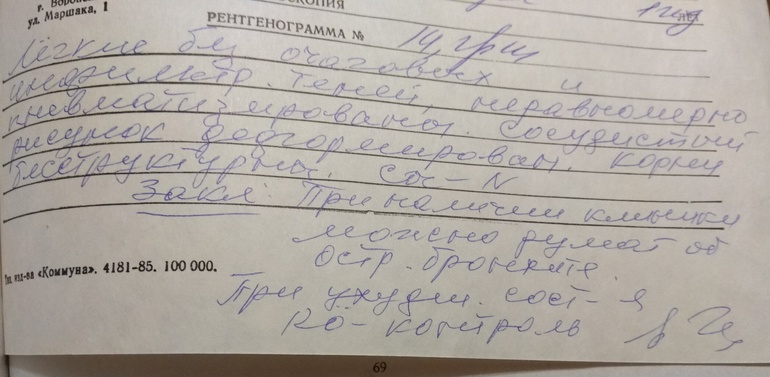 г. Воронеж
ул. Маршака, 1
РЕНТГЕНОГРАММА №
Лёгкие без очаговых и
инфильтр. теней, неравномерно
пневматизированы. Сосудистый
рисунок деформирован. Корни
бесструктурны. Cor - N
Закл: При наличии клиники
можно думат об
остр. бронхите.
При ухудш. сост-я
Rö-контроль
Тип. изд-ва «Коммуна». 4181-85. 100 000.
69